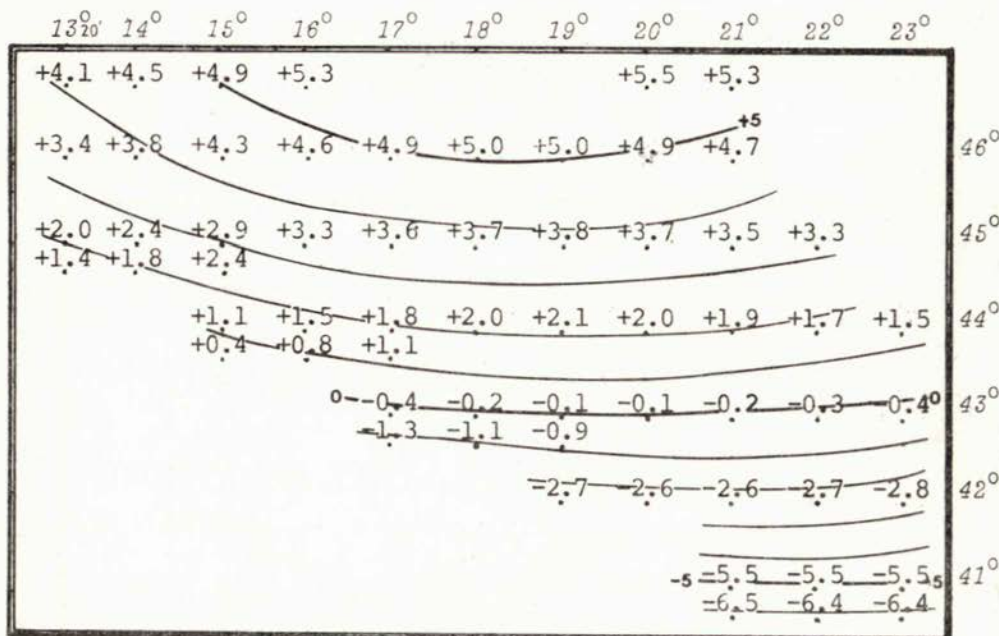 13°20' 14° 15° 16° 17° 18° 19° 20° 21° 22° 23°
+4.1 +4.5 +4.9 +5.3 +5.5 +5.3
+5
+3.4 +3.8 +4.3 +4.6 +4.9 +5.0 +5.0 +4.9 +4.7 46°
+2.0 +2.4 +2.9 +3.3 +3.6 +3.7 +3.8 +3.7 +3.5 +3.3 45°
+1.4 +1.8 +2.4
+1.1 +1.5 +1.8 +2.0 +2.1 +2.0 +1.9 +1.7 +1.5 44°
+0.4 +0.8 +1.1
0 -0.4 -0.2 -0.1 -0.1 -0.2 -0.3 -0.4 0 43°
-1.3 -1.1 -0.9
-2.7 -2.6 -2.6 -2.7 -2.8 42°
-5 -5.5 -5.5 -5.5 -5 41°
-6.5 -6.4 -6.4